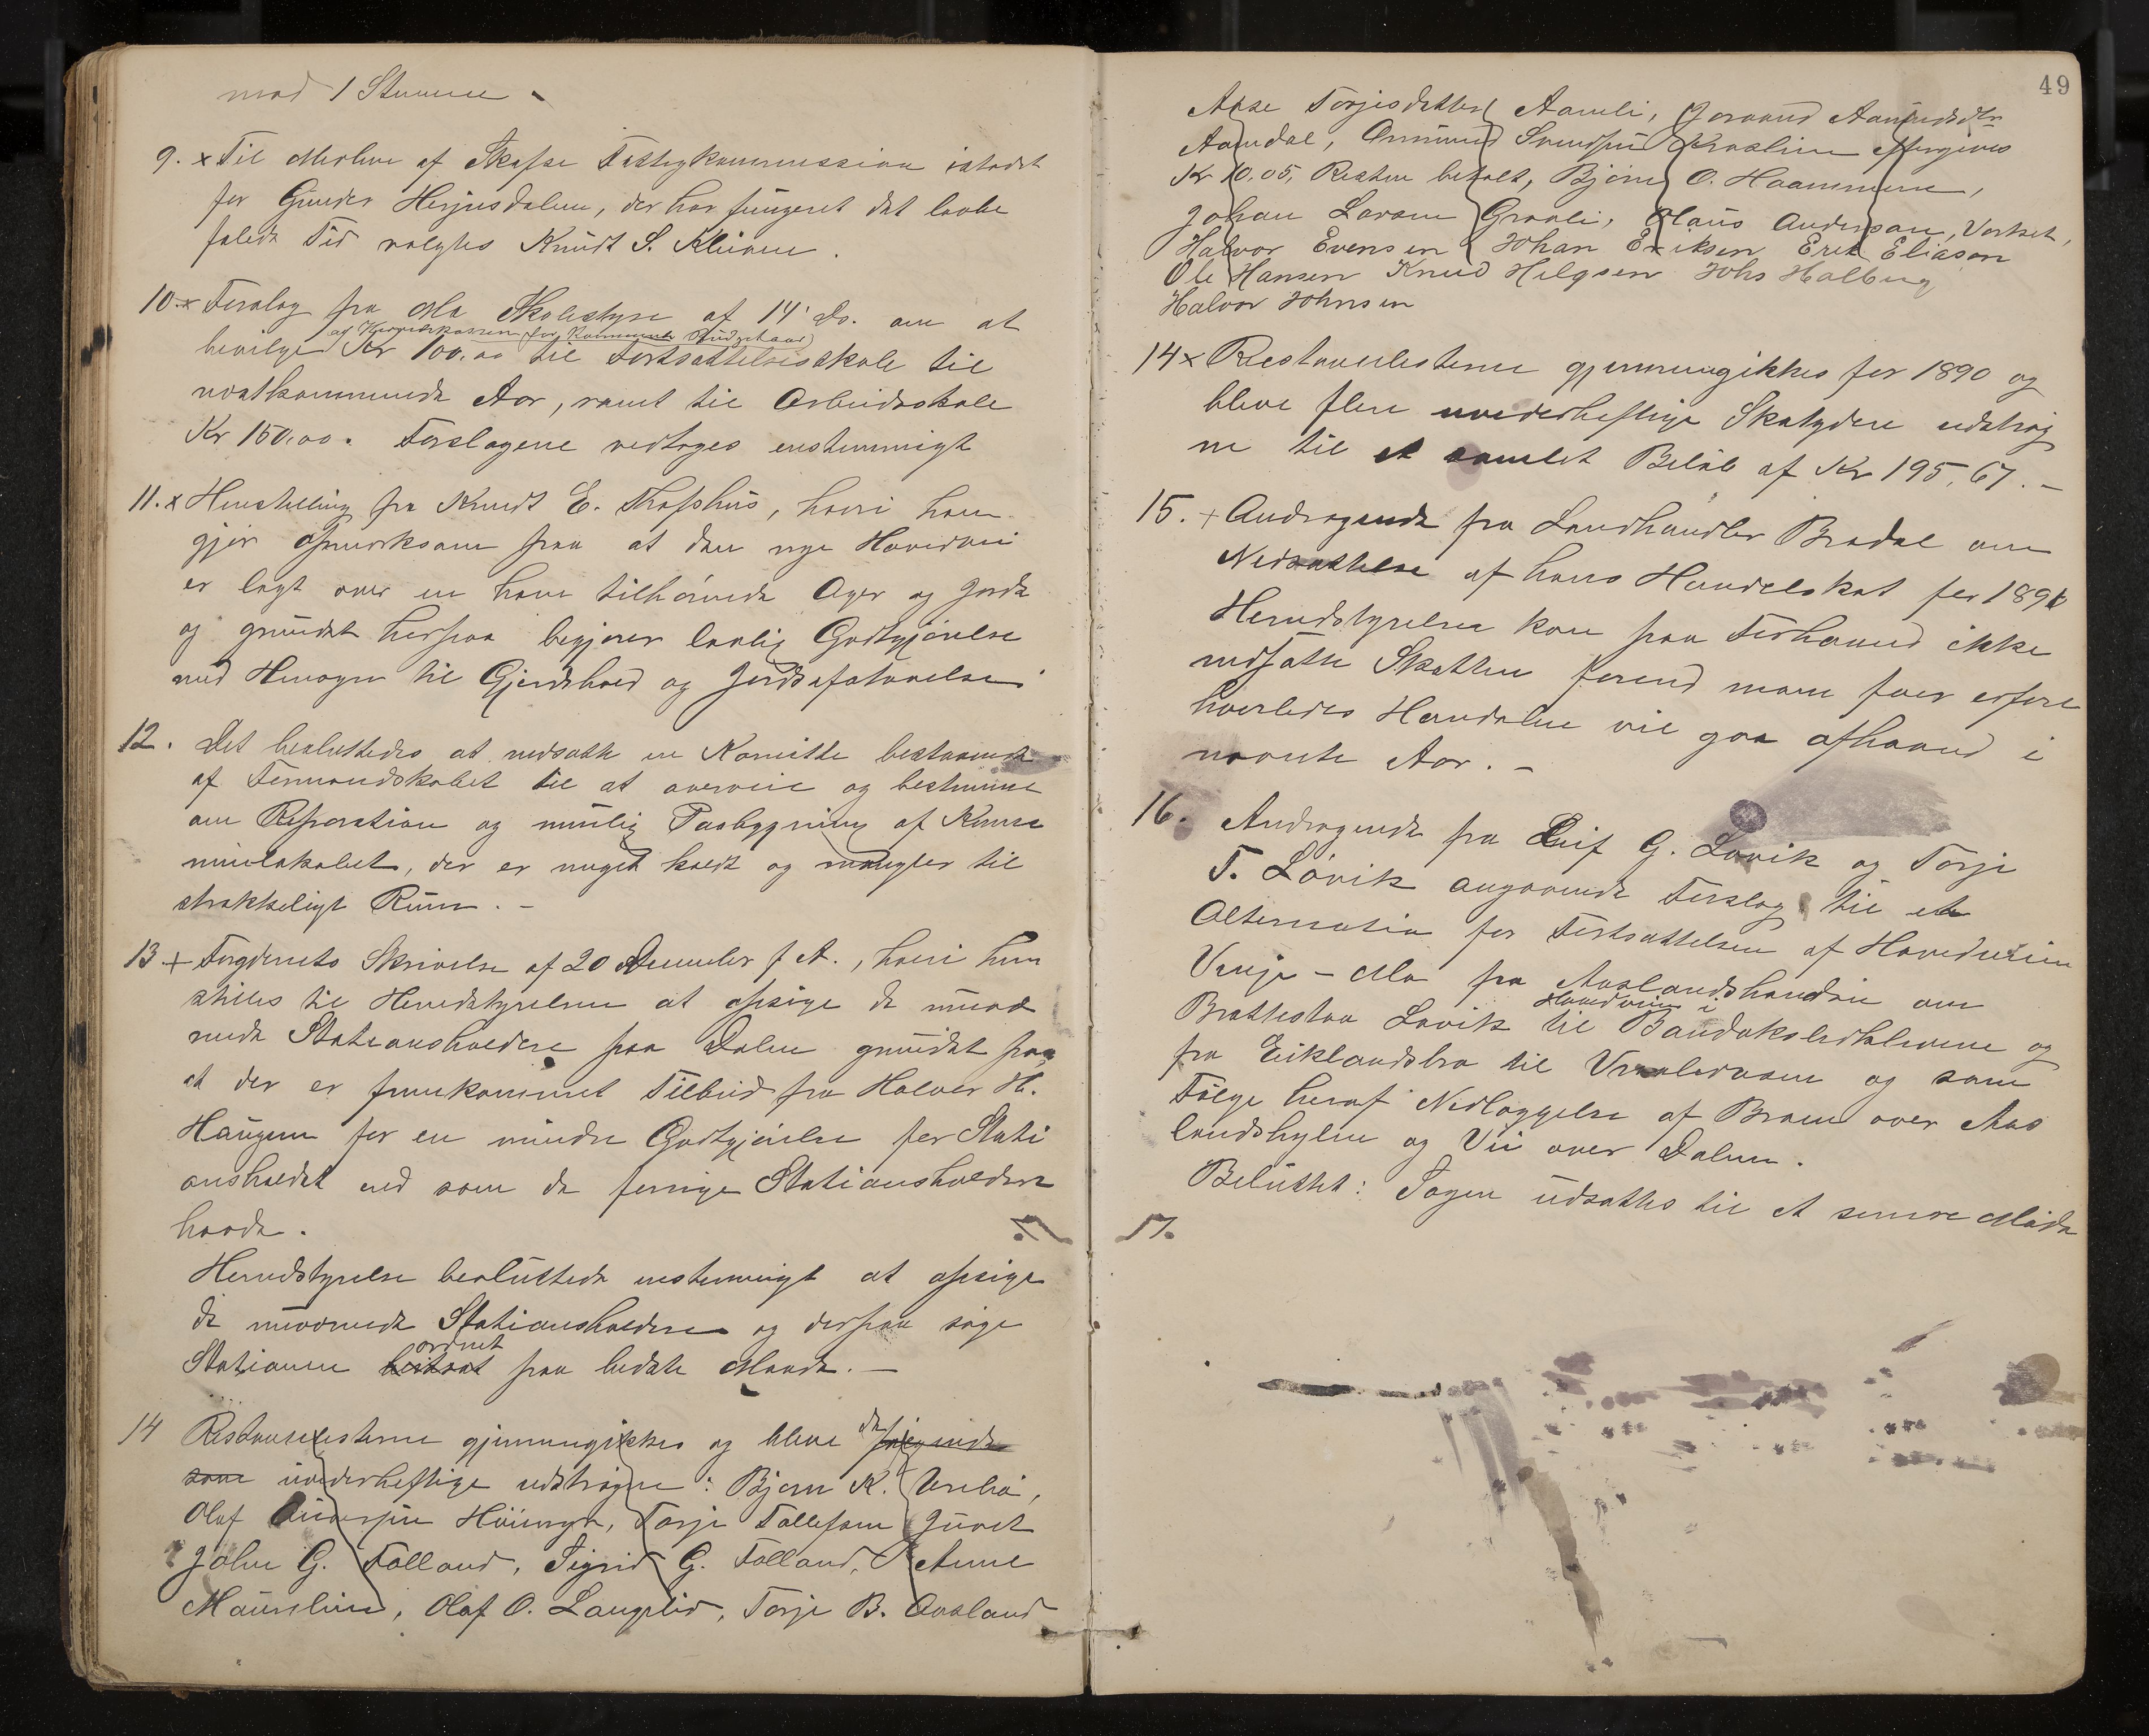 mod 1 Stemme
9. x Til Medlem af Skafse Fattigkommission istedet
for Gunder Herjusdalen, der har fungeret det lovbe
falede Tid valgtes Knudt S. Kleiven.
10. x Forslag fra Mo Skolestyre af 14' ds. om at
af Herredskassen for Kommunens Budget aar
bevilge Kr 100,00 til Fortsættelsesskole til
næstkommende Aar, samt til Arbeidsskole
Kr 150,00. Forslagene vedtoges enstemmigt
11. x Henstilling fra Knudt E. , hvori han
gjør opmerksom paa at den nye Hovedvei
er lagt over en ham tilhørende Ager og Jorde
og grundet herpaa begjærer lovlig Godtgjørelse
med Hensyn til Gjerdehold og Jordafstaaelse
12. Det besluttedes at nedsætte en Komitte bestaaende
af Formandskabet til at overveie og bestemme
om Reparation og mulig Paabygning af Kommu
nelokalet, der er meget koldt og mangler til
strækkeligt Rum. -
13 + Fogderiets Skrivelse af 20 December f A., hvori hen
stilles til Herredstyrelsen at opsige de nuvæ
rende Stationsholdere paa Dalen grundet paa
at der er fremkommet Tilbud fra Halvor H.
Haugen for en mindre Godtgjørelse for Stati
onsholdet end som de forrige Stationsholdere
havde.
Herredstyrelse besluttede enstemmigt at opsige
de nuværende Stationsholdere og derpaa søge
ordnet
Stationen paa bedste Maade. -
14 Restancelisterne gjennemgikkes og bleve de følgende
som uvederheftige udstrøgne: Bjørn K. ,
Olaf , Torje Tollefsen Juvet
John G. Folland, Sigrid G. Folland, Anne
, Olaf O. Langelid, Torje B. Aasland
49
Aase Torjesdatter Aamli, Jorand Aanundsdtr
Aamdal, Svendsen eftergives
Kr 10,05, Resten betalt, Bjørn O. Haammeren,
Johan Larsen Graali, Olaus Anderson, Verket,
Halvor Evensen Johan Eriksen Erik Eliason
Ole Hansen Knud Helgsen Johs Halberg
Halvor Johnsen
14 x Restancelisterne gjennemgikkes for 1890 og
bleve flere uvederheftige Skatydere udstrøg
ne til et samlet Beløb af Kr 195,67. -
15. + Andragende fra Landhandler Bredal om
Nedsættelse af hans Handelskat for 1891
Herredstyrelsen kan paa Forhaand ikke
nedsætte Skatten førend man faar erfare
hvorledes Handelen vil gaa afhaand i
nævnte Aar. -
16. Andragende fra Leif G. Løvik og Torje
T. Løvik angaaende Forslag til et
Alternativ for Fortsættelsen af Hovedveien
Vinje - Mo fra Aaslandshændæn om
Hovedveien i
Brattestaa Løvik til Bandakslidkleivene og
fra Eiklandsbro til Vraaliosen og som
Følge heraf Nedlæggelse af Broen over Aas
landshylen og Vei over Dalen.
Besluttet: Sagen udsattes til et senere Møde
17.